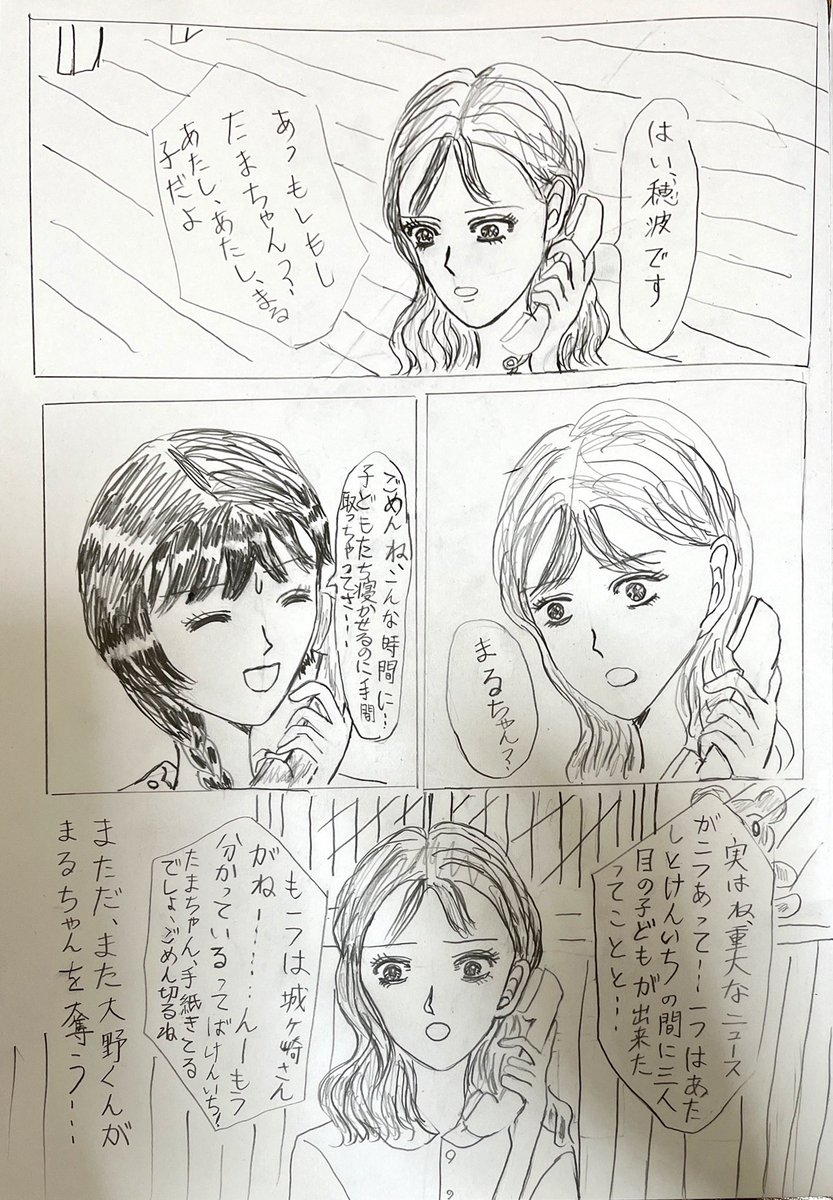 はい、穂波です
あっもしもし
たまちゃんっ?
あたし、あたし、まる
子だよ
まるちゃん?
ごめんね、こんな時間に…
子どもたち寝かせるのに手間
取っちゃってさ……
実はね、重大なニュース
が二つあって…一つはあた
しとけんいちの間に三人
目の子どもが出来た
ってことと…
もう一つは城ヶ崎さん
がね―……んーもう
分かっているってばけんいち!
たまちゃん、手紙きてる
でしょ、ごめん切るね
まただ、また大野くんが
まるちゃんを奪う…